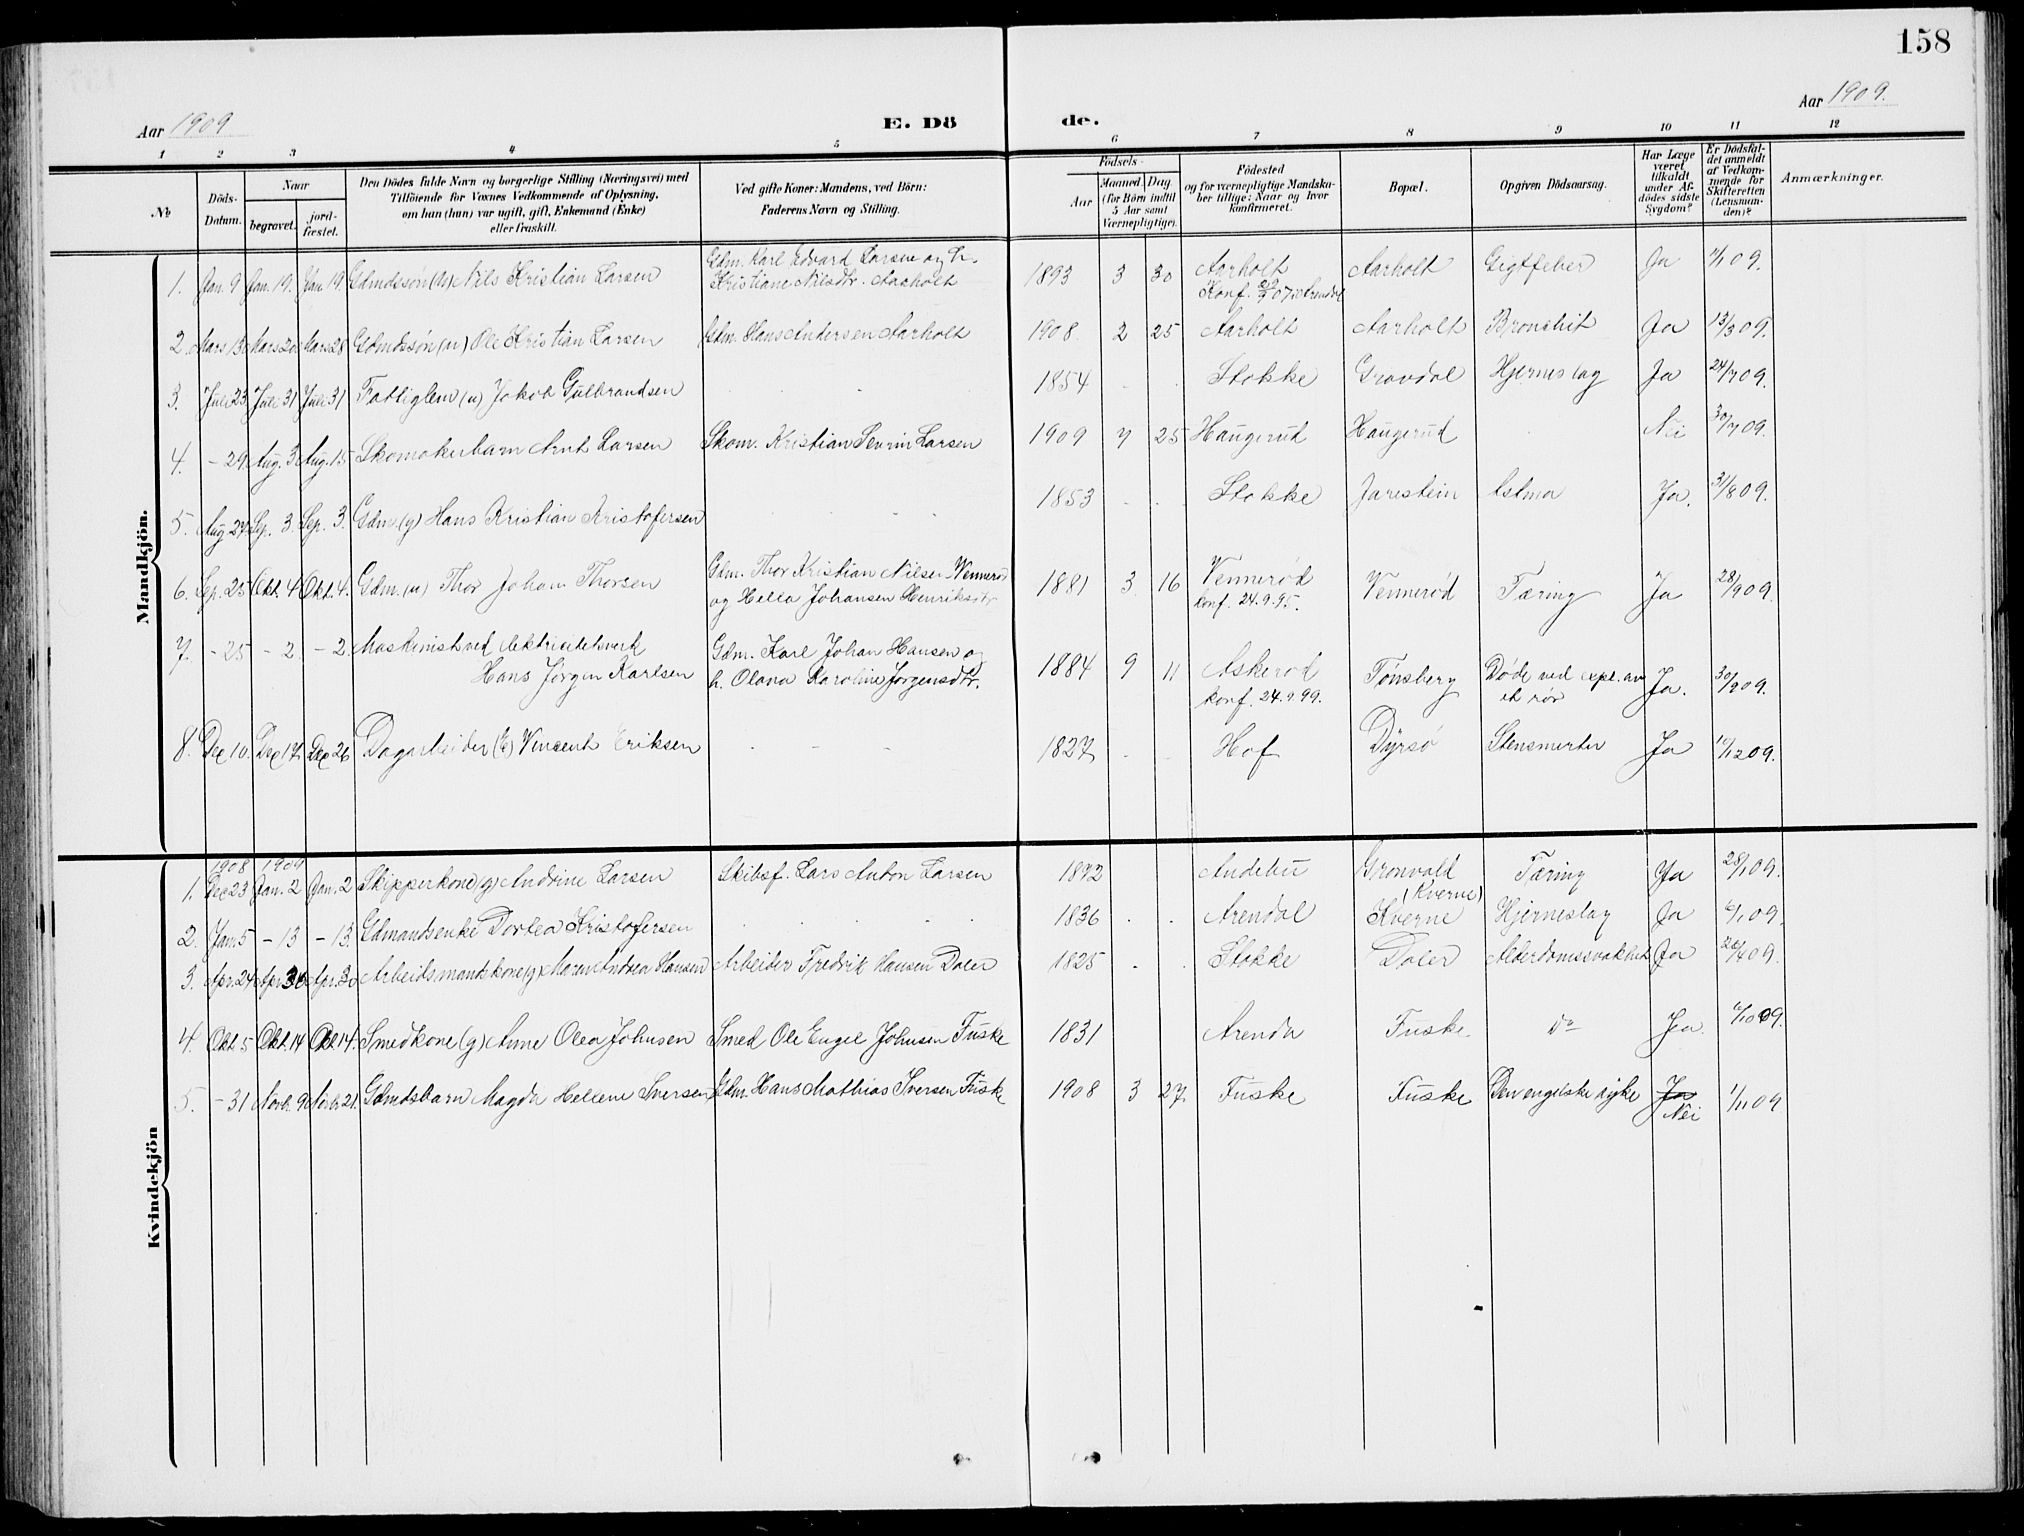 158
Aar 1909
E. Dö
de.
Aar 1909.
1 2 3 4 5 6 7 8 9 10 11 12
No
Döds-
Datum.
Naar
begravet.
jord-
fæstet.
Den Dödes fulde Navn og borgerlige Stilling (Næringsvei) med
Tilföiende for Voxnes Vedkommende af Oplysning,
om han (hun) var ugift, gift, Enkemand (Enke)
eller fraskilt.
Ved gifte Koner: Mandens, ved Börn:
Faderens Navn og Stilling.
Födsels-
Aar
Maaned. Dag.
(for Börn indtil
5 Aar samt
Værnepligtige).
Födested
og for værnepligtige Mandska-
ber tillige: Naar og hvor
konfirmeret.
Bopæl.
Opgiven Dödsaarsag.
Har Læge
været
tilkaldt
under Af-
dödes sidste
Sygdom?
Er Dödsfal-
det anmeldt
af Vedkom-
mende for
Skifteretten
(Lensman-
den)?
Anmærkninger.
Mandkjön.
Gdm. Karl Edvard Larsen og h.
1. Jan. 9 Jan. 19. Jan. 19. Gdmdssøn (u) Nils Kristian Larsen Kristiane Nilsdtr. Aarholt 1893 3 30 Aarholt Aarholt Gigtfeber Ja 11/1 09.
Konf. 07 Arendal
2. Mars 13 Mars 20 Mars 28 Gdmdssøn (u) Ole Kristian Larsen Gdm. Hans Andersen Aarholt 1908. 2 25 Aarholt Aarholt Bronchit Ja 13/3 09.
3. Juli 23 Juli 31 Juli 31 Fattiglem (u) Jakob Gulbrandsen - - 1854 - - Stokke Gravdal Hjerneslag Ja 24/7 09.
4. - 29 Aug. 3 Aug. 15 Skomakerbarn Arnt Larsen Skom. Kristian Sevrin Larsen 1909 7 25 Haugerud Haugerud Nei 30/7 09.
5. Aug 27 Sep. 3. Sep. 3. Gdm. (g) Hans Kristian Kristofersen - - - 1853 - - Stokke Jarestein Astma Ja. 31/8 09.
6. Sep. 25 Okt. 4 Okt. 4. Gdm. (u) Thor Johan Thorsen Gdm. Thor Kristian Nilsen Vennerød 1881 3 16 Vennerød Vennerød Tæring Ja 28/9 09.
og Hella Johansen Henriksdtr konf. 24.9.95.
7. - 25 - 2. - 2. Maskinist ved elektricitetsverk Gdm. Karl Johan Hansen og
Hans Jørgen Karlsen h. Olava Karoline Jørgensdtr. 1884 9 11 Askerød Tønsberg Døde ved expl. av Ja. 30/9 09.
konf. 24.9.99. et rør
8. Dec 10. Dec 17. Dec 26 Dagarbeider (E) Vincent Eriksen - - - 1827 - - Hof Dyrsø Stensmerter Ja 11/12 09.
Kvindekjön
1908 1909
1. Dec 23 Jan. 2 Jan. 2 Skipperkone (g) Andrine Larsen Skibsf. Lars Anton Larsen 1872 Andebu Grønvold Tæring Ja 28/1 09.
(Kverne)
2. Jan. 5 - 13 - 13. Gdmandsenke Dortea Kristofersen . . . 1836 . . Arendal Kverne Hjerneslag Ja 6/1 09.
3. Apr. 24 Apr. 30 Apr. 30 Arbeidsmandskone (g) Maren Andrea Hansen Arbeider Fredrik Hansen Daler 1825 . . Stokke Daler Alderdomssvakhet Ja 26/4 09.
4. Okt. 5 Okt. 14 Okt. 14. Smedkone (g) Anne Olea Johnsen Smed Ole Engel Johnsen Fuske 1831 Arenda Fuske. do Ja. 6/10 09.
5. - 31 Novb. 9 Novb. 21. Gdmdsbarn Magda Hellene Iversen Gdm. Hans Mathias Iversen Fuske 1908 3 27 Fuske Fuske Den engelske syke Ja 1/11 09
Nei